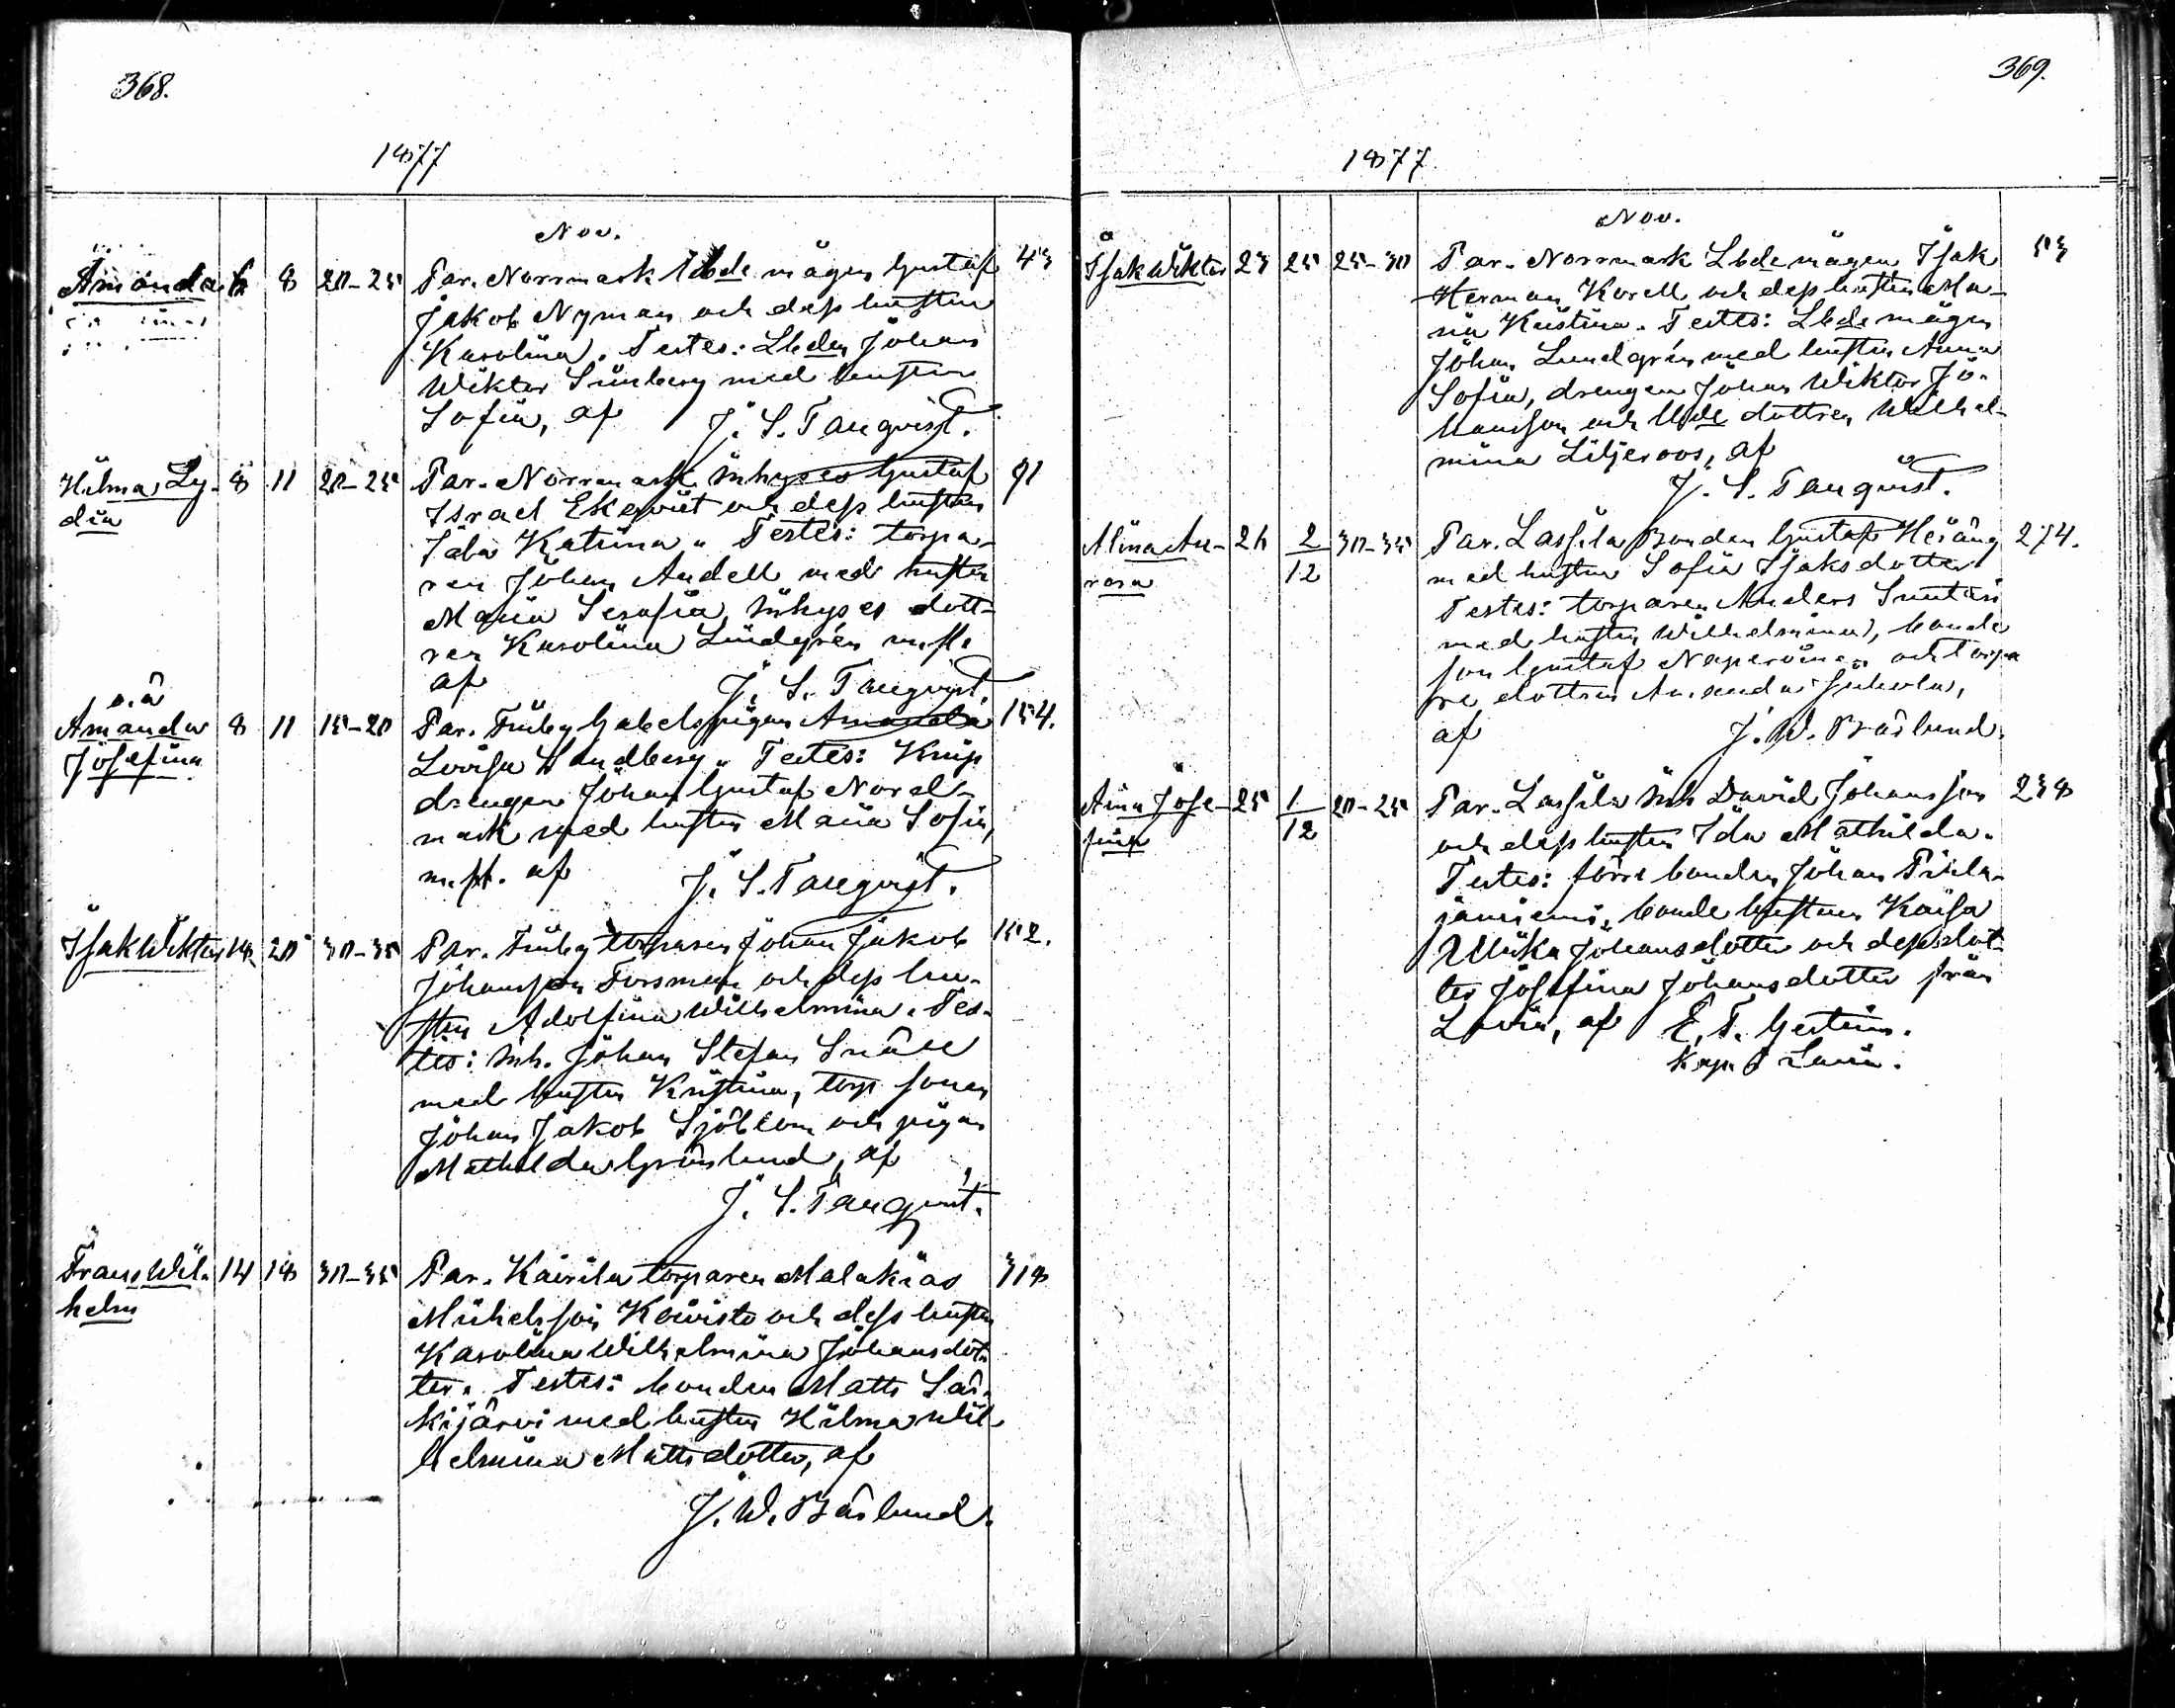 368.
1877
Nov.
Amanda 6 8 20-25 Par. Norrmark Lbde mågen Gustaf 43
Jakob Nyman och dess hustru
Karolina. Testes: Lbden Johan
Wiktor Sünberg med hustru
Sofia, af J. S. Tanqvist.
Hilma Ly- 8 11 20-25 Par. Norrmark Inhyses Gustaf 91
dia Israel Ekqvist och dess hustru
Ida Katrina. Testes: torpa-
ren Johan Andell med hustru
Maria Serafia, Inhyses dott-
ren Karolina Lindgrén
af J. S. Tanqvist.
o.ä
Amanda 8 11 15-20 Par. Finby Gabelspigan Amanda 154.
Josefina Lovisa Sandberg. Testes: Knip
drengen Johan Gustaf Norel-
mark med hustru Maria Sofia,
m.fl. af J. S. Tanqvist.
Isak Wiktor 14 20 30-35 Par. Finby torparen Johan Jakob 152.
Johansson Forsman och dess hu-
stru Adolfina Wilhelmina. Tes-
tes: Inh. Johan Stefan Snäll
med hustru Kristina, torp sonen
Johan Jakob Sjöblom och pigan
Mathilda Grönlund, af
J. S. Tanqvist.
Frans Wil- 14 18 30-35 Par. Kairila torparen Malakias 318
helm Michelsson Koivisto och dess hustru
Karolina Wilhelmina Johansdot-
ter. Testes: bonden Matts Sär-
kijärvi med hustru Hilma Wil-
helmina Mattsdotter, af
J. W. Båslund.
369.
1877.
Nov.
Isak Wiktor 23 25 25-30 Par. Norrmark Lbde mågen Isak 53
Herman Korell och dess hustru Ma-
ria Kristina. Testes: Lbde mågen
Johan Lundgrén med hustru Anna
Sofia, drengen Johan Wiktor Jo-
hansson och Lbde dottren Wilhel-
mina Liljeroos, af
J. S. Tanqvist.
Alina Au- 26 2/12 30-35 Par. Lassila Bonden Gustaf Heiäng 274.
rora med hustru Sofia Isaksdotter
Testes: torparen Anders Suntari
med hustru Wilhelmina, bonde
son Gustaf och torpa
re dottren Amanda Juhola,
af J. W. Båslund.
Aina Jose- 25 1/12 20-25 Par. Lassila Inh David Johansson 238
fina och dess hustru Ida Mathilda.
Testes: förre bonden Johan
bonde hustrun Kaisa
Ulrika Johansdotter och dess dot-
ter Josefina Johansdotter från
Lavia, af E. T. Gestrin.
Kap. i Lavia.